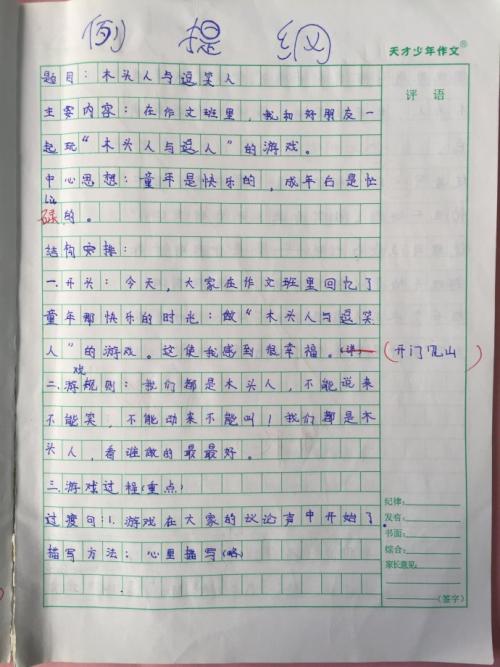 例 提 纲
天才少年作文®
评 语
题目：木头人与逗笑人
主要内容：在作文班里，我和好朋友一
起玩“木头人与逗人”的游戏。
中心思想：童年是快乐的，成年白是忙
lù
碌的。
结构安排：
一.开头：今天，大家在作文班里回忆了
童年那快乐的时光：做“木头人与逗笑
人”的游戏。这使我感到很幸福。
（开门见山）
戏
二.游规则：我们都是木头人，不能说来
不能笑，不能动来不能叫！我们都是木
头人，看谁做的最最好。
三.游戏过程（重点）
过渡句：1.游戏在大家的议论声中开始了。
描写方法：心里描写（略）
纪律：
发言：
书面：
综合：
家长意见：
（签字）